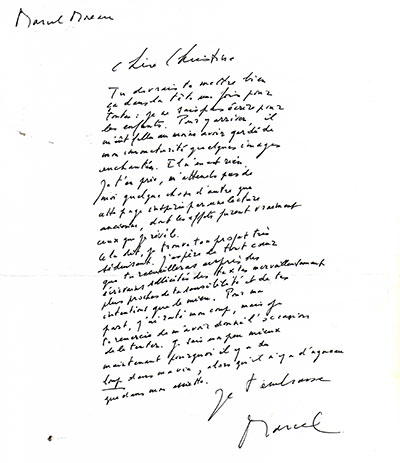 Marcel Moreau
Chère Christine
Tu devrais te mettre bien
ça dans la tête une fois pour
toutes : je ne sais pas écrire pour
les enfants. Pour y arriver, il
m'eût fallu au moins avoir gardé de
mon immaturité quelques images
enchantées. Il n'en est rien.
Je t'en prie, n'attends pas de
moi quelque chose d'autre que
cette page inspirée par une lecture
ancienne, dont les effets furent vraiment
ceux que je révèle.
Cela dit, je trouve ton projet très
séduisant. J'espère de tout cœur
que tu recueilleras auprès des
écrivains sollicités des textes merveilleusement
plus proches de ta sensibilité et de tes
intentions que le mien. Pour ma
part, j'ai raté mon coup, mais je
te remercie de m'avoir donné l'occasion
de le tenter. Je sais un peu mieux
maintenant pourquoi il y a du
loup dans ma vie, alors qu'il n'y a d'agneau
que dans mon assiette.
Je t'embrasse
Marcel